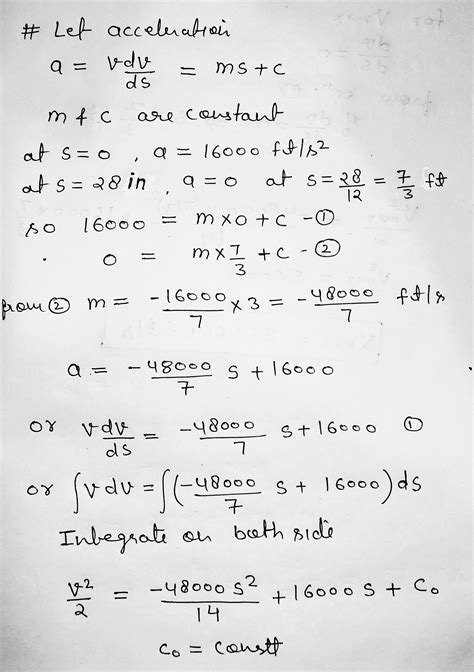 # Let acceleration
a = vdv/ds = ms + c
m & c are constant
at s=0, a = 16000 ft/s²
at s = 28 in, a=0 at s = 28/12 = 7/3 ft
so 16000 = m×0 + c - ①
0 = m×7/3 + c - ②
from ② m = -16000/7 ×3 = -48000/7 ft/s
a = -48000/7 s + 16000
or vdv/ds = -48000/7 s + 16000 ①
or ∫vdv = ∫(-48000/7 s + 16000) ds
Integrate on both side
v²/2 = -48000 s²/14 + 16000 s + C₀
C₀ = constt